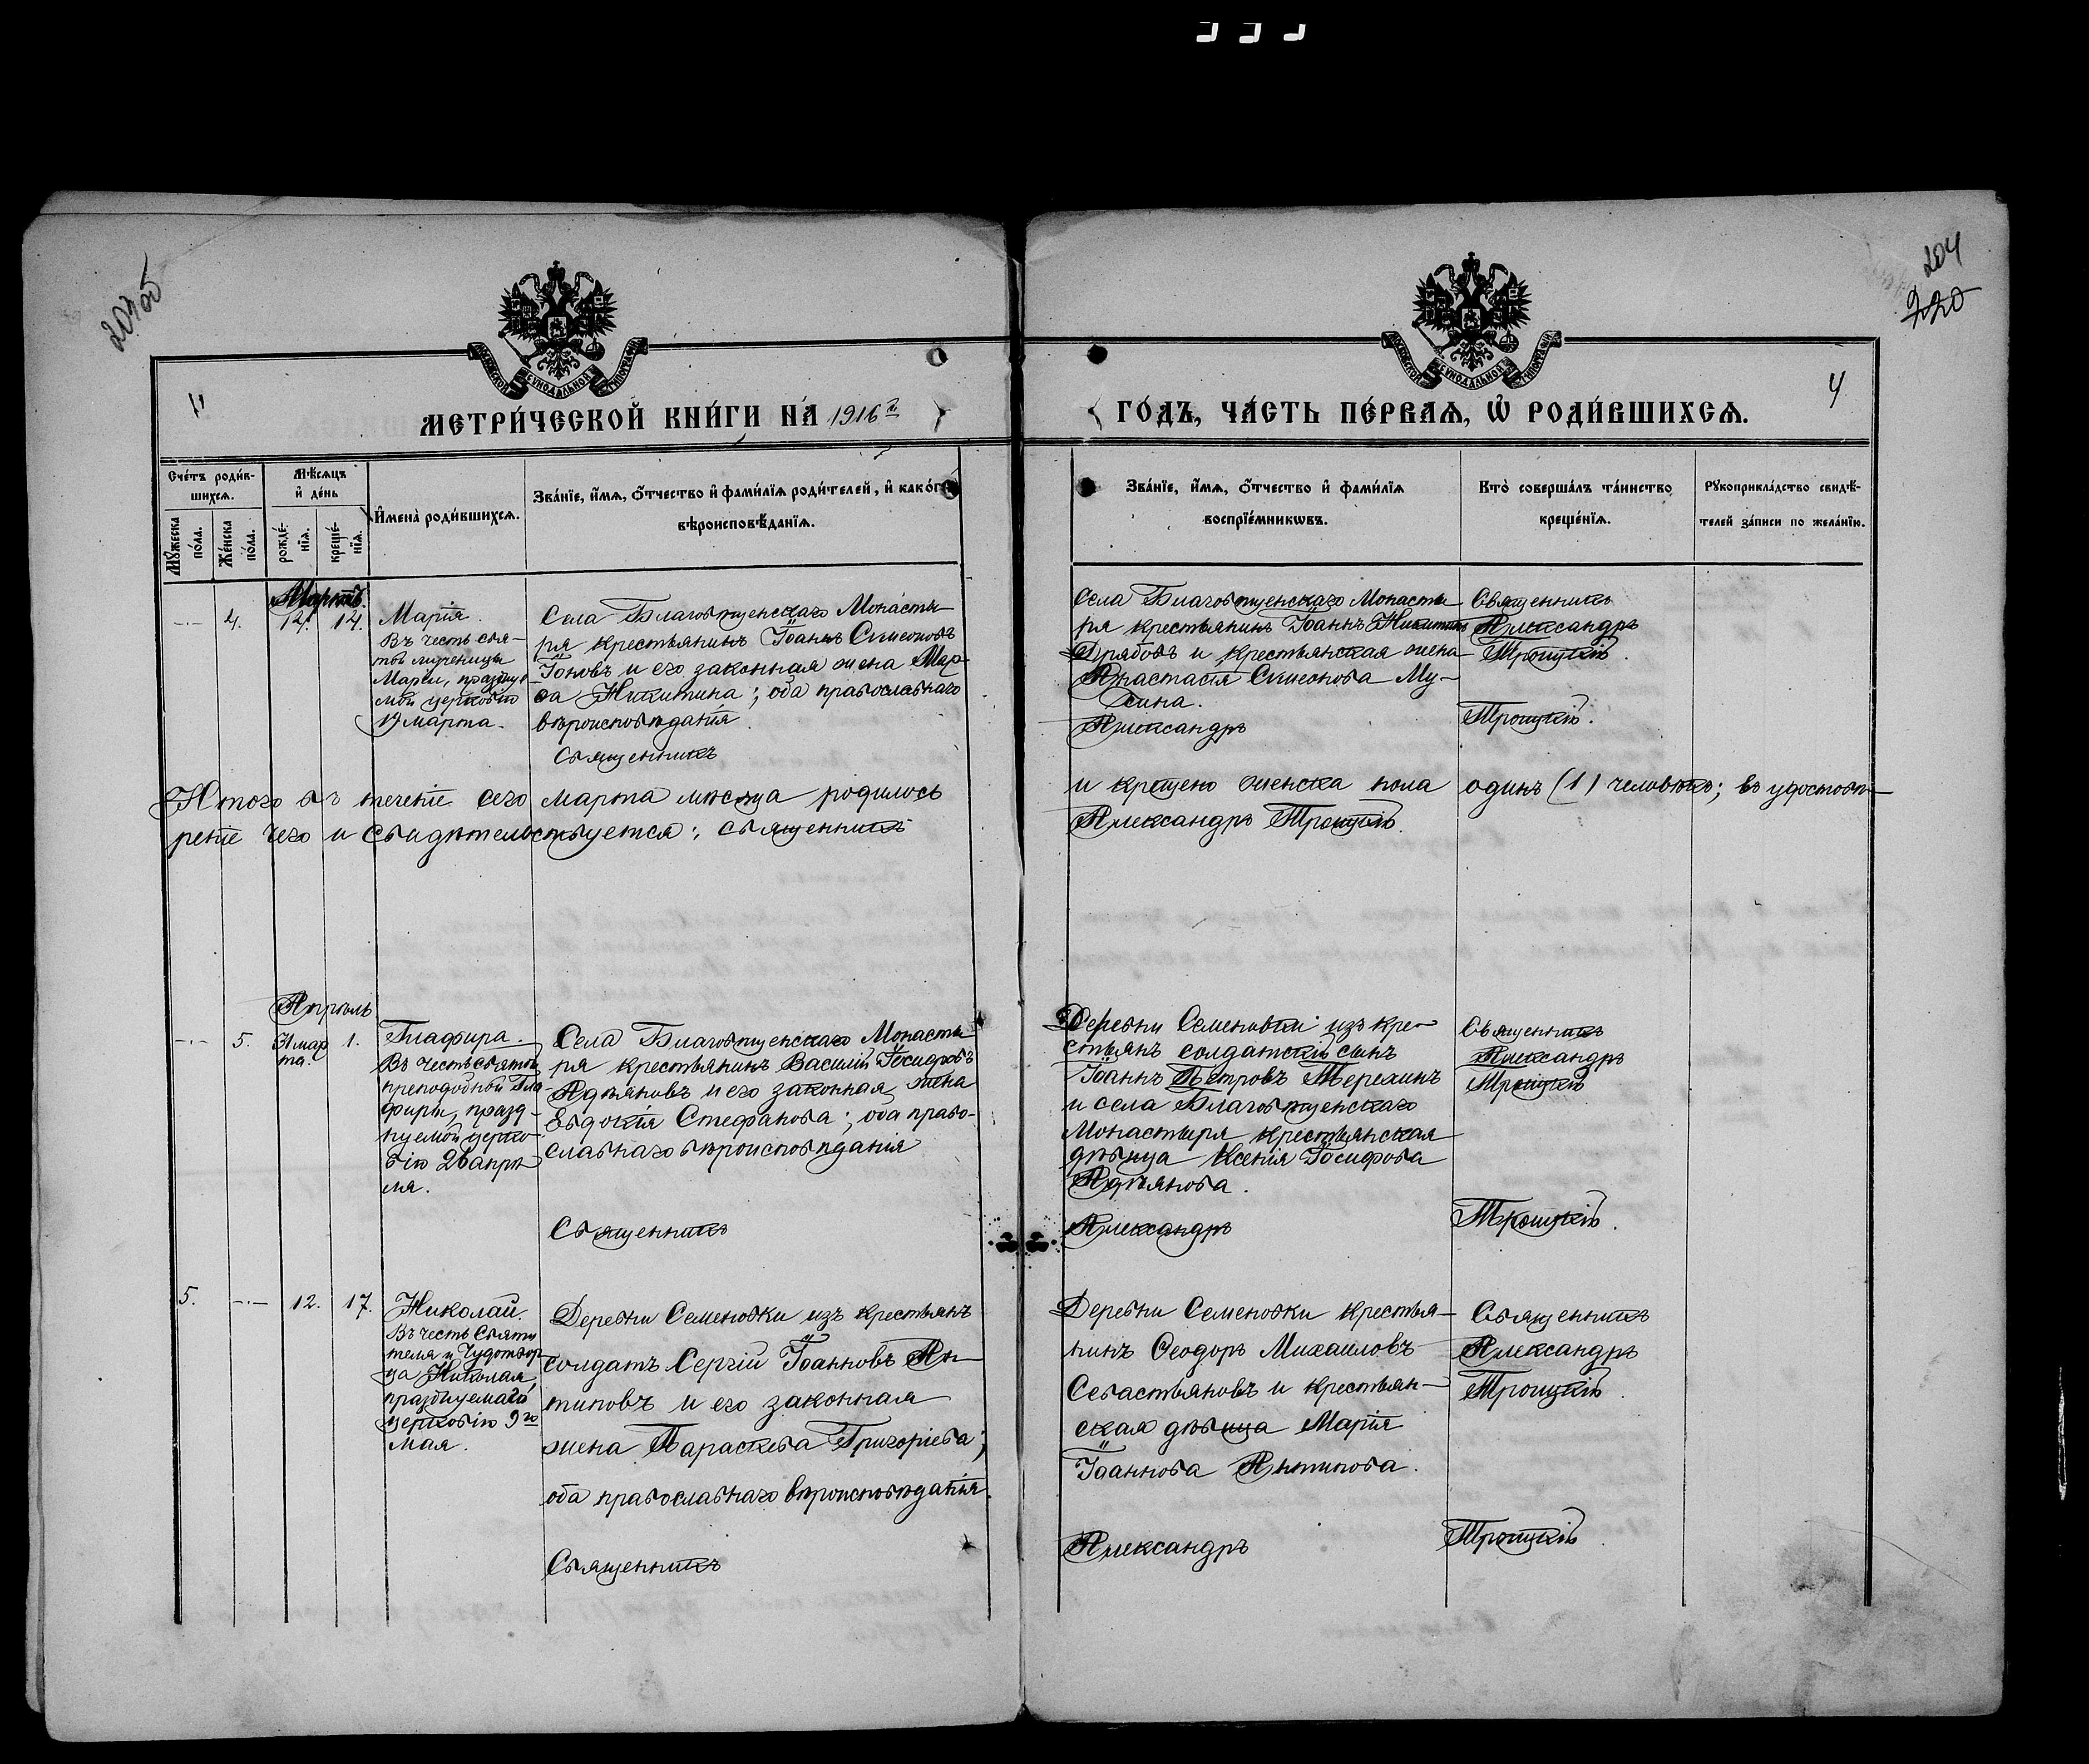 204
220
4
МЕТРИ́ЧЕСКОЙ КНИ́ГИ НА́ 1916 г.
ГО́ДЪ, ЧА́СТЬ ПЕ́РВАЯ, Ѡ҆ РОДИ́ВШИХСЯ.
Сче́тъ роди́в-
шихся.
Мѣ́сяцъ
и҆ де́нь
Мꙋ́жеска
по́ла.
Же́нска
по́ла.
рожде́-
нїѧ.
креще́-
нїѧ.
И҆мена̀ роди́вшихсѧ.
Зва́нїе, и҆́мѧ, ѻ҆́тчество и҆ фами́лїѧ роди́телей, и҆ како́гѡ
вѣроисповѣ́данїѧ.
Зва́нїе, и҆́мѧ, ѻ҆́тчество и҆ фами́лїѧ
воспрїе́мникѡвъ.
Кто̀ соверша́лъ та́инство
креще́нїѧ.
Рꙋкоприкла́дство свидѣ́-
телей за́писи по жела́нїю.
Мартъ.
4.
14.
14.
Марія.
Въ честь свя-
той мученицы
Маріи, праздну-
емой церковію
17 марта.
Села Благовѣщенскаго Монасты-
ря крестьянинъ Іоаннъ Симеоновъ
Іоновъ и его законная жена Мар-
ѳа Никитина; оба православнаго
вѣроисповѣданія.
Священникъ
Села Благовѣщенскаго Монасты-
ря крестьянинъ Іоаннъ Никитинъ
Дрябовъ и крестьянская жена
Анастасія Симеонова Му-
сина.
Александръ
Священникъ
Александръ
Троицкій.
Троицкій.
Итого въ теченіе сего марта мѣсяца родилось
и крещено женска пола одинъ (1) человѣкъ; въ удостовѣ-
реніе чего и свидѣтельствуется: священникъ
Александръ Троицкій.
Апрѣль
5.
31 мар
та.
1.
Глафира.
Въ честь святой
преподобной Гла-
фиры, празд-
нуемой церко-
вію 26 апрѣ
ля.
Села Благовѣщенскаго Монасты
ря крестьянинъ Василій Іосифовъ
Адѣяновъ и его законная жена
Евдокія Стефанова; оба право-
славнаго вѣроисповѣданія
Священникъ
Деревни Семеновки изъ кре-
стьянъ солдатскій сынъ
Іоаннъ Петровъ Терехинъ
и села Благовѣщенскаго
Монастыря крестьянская
дѣвица Ксенія Іосифова
Адѣянова.
Александръ
Священникъ
Александръ
Троицкій
Троицкій.
5.
12.
17.
Николай.
Въ честь Святи
теля и Чудотвор
ца Николая,
празднуемаго
церковію 9го
Мая.
Деревни Семеновки изъ крестьянъ
солдатъ Сергій Іоанновъ Ан-
типовъ и его законная
жена Параскева Григоріева;
оба православнаго вѣроисповѣданія.
Священникъ
Деревни Семеновки крестья-
нинъ Ѳеодоръ Михаиловъ
Севастьяновъ и крестьян-
ская дѣвица Марія
Іоаннова Антипова.
Александръ
Священникъ
Александръ
Троицкій.
Троицкій.